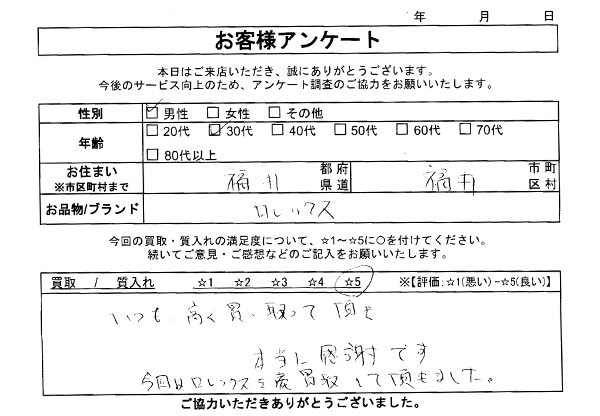 年 月 日
お客様アンケート
本日はご来店いただき、誠にありがとうございます。
今後のサービス向上のため、アンケート調査のご協力をお願いいたします。
性別 ☑ 男性 □ 女性 □ その他
年齢 □ 20代 ☑ 30代 □ 40代 □ 50代 □ 60代 □ 70代
□ 80代以上
お住まい ※市区町村まで 福井 都府県道 福井 市町区村
お品物/ブランド ロレックス
今回の買取・質入れの満足度について、☆1～☆5に○を付けてください。
続いてご意見・ご感想などのご記入をお願いいたします。
買取 / 質入れ ☆1 ☆2 ☆3 ☆4 ☆5 ※【評価:☆1(悪い)-☆5(良い)】
いつも、高く買い取って頂き
本当に感謝です
今回はロレックスを 買取して頂きました。
ご協力いただきありがとうございました。